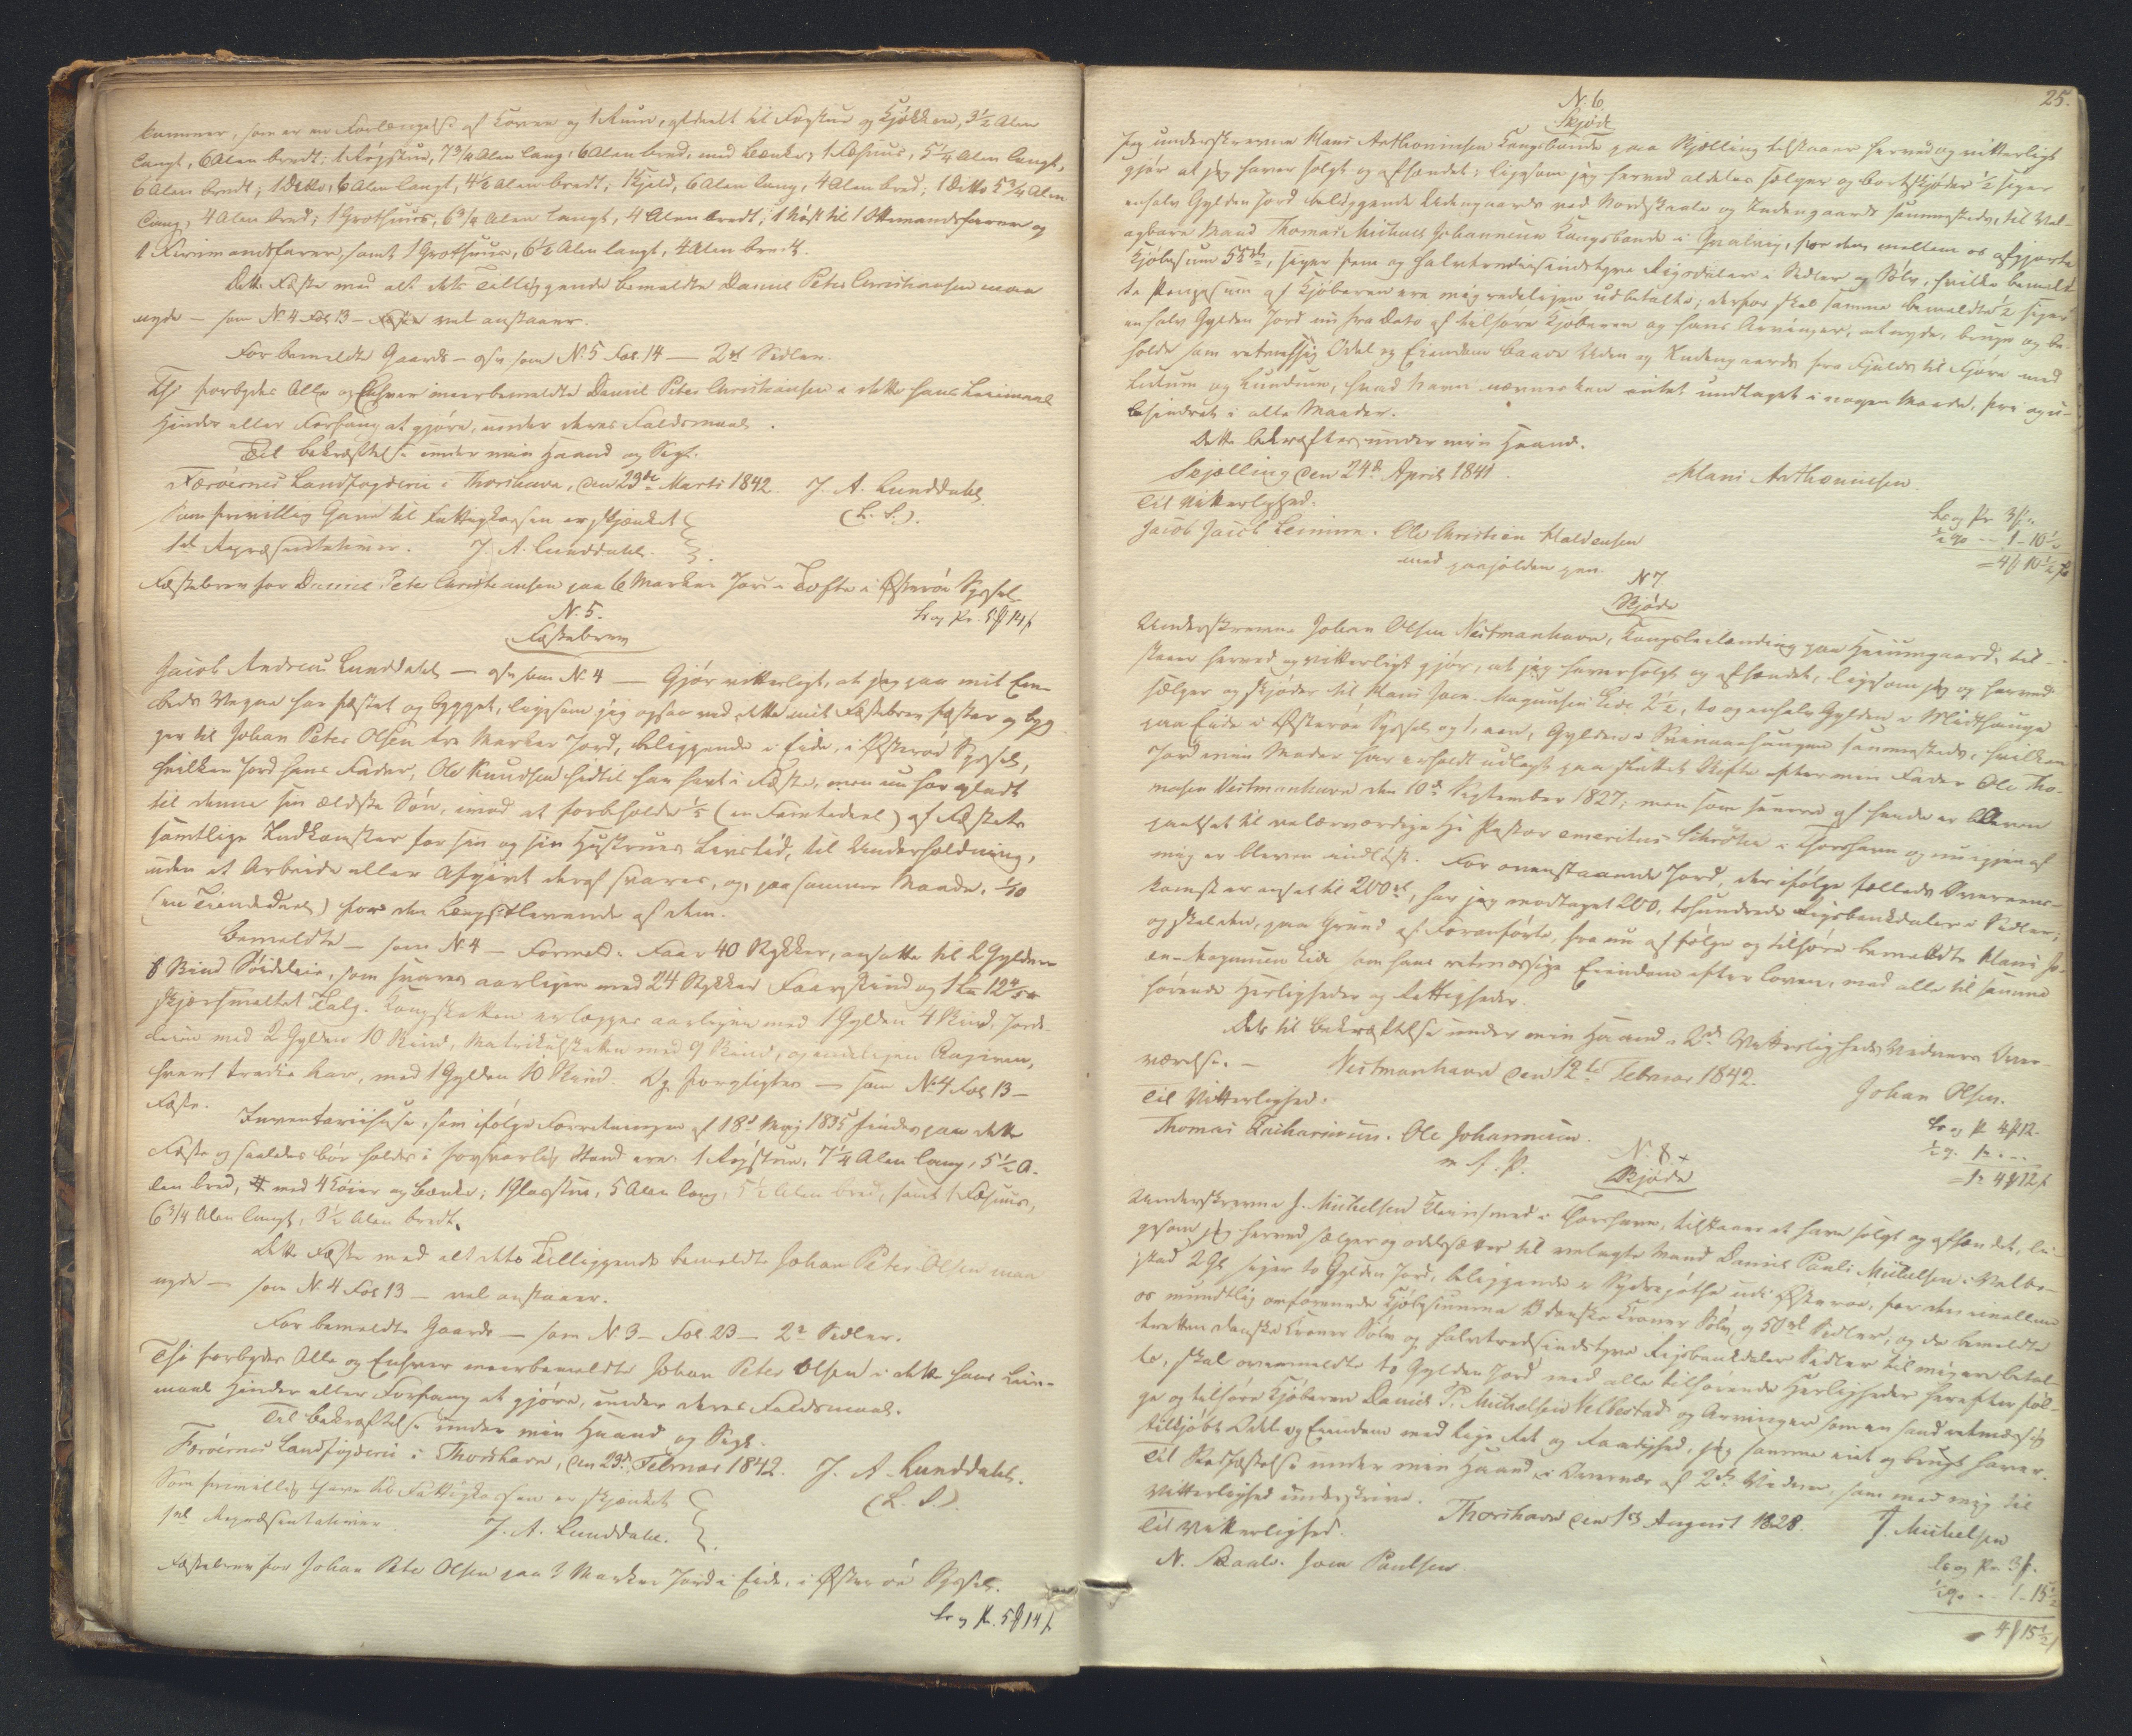 Kammer, som er en Forlængelse af Loven og 1 Ruum, afdeelt til Forstue og Kjøkken, 3½ Alen
langt, 6 Alen bredt; 1 Røgstue, 7¾ Alen lang, 6 Alen bred, med Bænke; 1 Fæhuus, 5¼ Alen langt,
6 Alen bredt; 1 Ditto, 6 Alen langt, 4½ Alen bredt; 1 Hjeld, 6 Alen lang, 4 Alen bred; 1 Ditto 5¾ Alen
lang, 4 Alen bred; 1 Grothuus, 6¾ Alen langt, 4 Alen bredt; 1 Nøst til 1 Ottemandsfarer og
1 Firemandsfarer, samt 1 Grothuus, 6½ Alen langt, 4 Alen bredt.
Dette Fæste med alt dets Tilliggende bemeldte Daniel Peter Christiansen maa
nyde — som N. 4 Fol. 13 — vel anstaaer.
For bemeldte Gaards — som N. 5 Fol. 14 — 2 rd Sedler.
Thi forbydes Alle og Enhver meerbemeldte Daniel Peter Christiansen i dette hans Leiemaal
Hinder eller Forfang at gjøre, under deres Faldsmaal.
Til Bekræftelse under min Haand og Segl.
Færøernes Landfogderie i Thorshavn, den 23de Marts 1842. J. A. Lunddahl
(L. S.).
Som frivillig Gave til Fattigkassen er skjænket
1 rd Repræsentativer. J. A. Lunddahl.
Fæstebrev for Daniel Peter Christiansen paa 6 Marker Jord i Tofte i Østerøe Syssel.
N. 5.
Fæstebrev
Jacob Andreas Lunddahl — som N. 4 — Gjør vitterligt, at jeg paa mit Em-
beds Vegne har fæstet og bygget, ligesom jeg ogsaa ved dette mit Fæstebrev fæster og byg
ger til Johan Peter Olsen tre Marker Jord, beliggende i Eide, i Østerøe Syssel,
hvilken Jord hans Fader, Ole Knudsen hidtil har havt i Fæste, men nu har afladt
til denne sin ældste Søn, imod at forbeholde 1/5 (en Femtedeel) af Fæstets
samtlige Indkomster for sin og sin Hustrues Levetid, til Underholdning,
uden at Arbeide eller Afgivt deraf svares, og, paa samme Maade, 1/10
(en Tiendedeel) for den Længstlevende af dem.
Bemeldte — som N. 4 — Formeld. Faar 40 Stykker, ansatte til 2 Gylden
8 Skind Søideleie, som svares aarligen med 24 Stykker Faarskind og 1
skjærsmeltet Talg. Kongskatten erlægges aarligen med 1 Gylden 4 Skind, Jorde-
leien med 2 Gylden 10 Skind, Matrikulskatten med 9 Skind, og endeligen Rugiven,
hvert tredie Aar, med 1 Gylden 10 Skind. Og forpligtes — som N. 4 Fol. 13 —
Fæste.
Inventariihuse, som ifølge Forretningen af 18d Maj 1835 findes paa dette
Fæste og saaledes bør holdes i forsvarlig Stand ere: 1 Røgstue, 7¼ Alen lang, 5½ A-
len bred, med 4 Køier og Bænke; 1 Glasstue, 5 Alen lang, 5½ Alen bred, samt 1 Fæhuus,
6¾ Alen langt, 3½ Alen bredt.
Dette Fæste med alt dets Tilliggende bemeldte Johan Peter Olsen maa
nyde — som N. 4 Fol. 13 — vel anstaaer.
For bemeldte Gaards — som N. 3 — Fol. 23 — 2 rd Sedler.
Thi forbydes Alle og Enhver meerbemeldte Johan Peter Olsen i dette hans Leie-
maal Hinder eller Forfang at gjøre, under deres Faldsmaal.
Til Bekræftelse under min Haand og Segl.
Færøernes Landfogderie i Thorshavn, den 23d Februar 1842. J. A. Lunddahl.
(L. S.)
Som frivillig Gave til Fattigkassen er skjænket
1 rd Repræsentativer. J. A. Lunddahl.
Fæstebrev for Johan Peter Olsen paa 3 Marker Jord i Eide, i Østerøe Syssel.
25.
N. 6.
Skjøde
Jeg underskrevne Hans Arthoniusen Kongsbonde paa Skjælling tilstaaer herved og vitterligt
gjør at jeg haver solgt og afhændet; ligesom jeg herved aldeles sælger og bortskjøder ½ siger
en halv Gylden Jord beliggende Udengaards ved Nordskaale og Indengaards sammesteds, til Vel-
agtbare Mand Thomas Michael Johannesen Kongsbonde i Qvalvig, for den mellem os afgjorte
Kjøbesum 55 rd, siger fem og halvtredsindstyve Rigsdaler i Sedler og Sølv, hvilke bemeld-
te Pengesum af Kjøberen ere mig redeligen udbetalte; derfor skal samme bemeldte ½ siger
en halv Gylden Jord nu fra Dato af tilhøre Kjøberen og hans Arvinger, at nyde, bruge og be-
holde som retmæssig Odel og Eiendom baade Uden og Indengaards fra Fjelds til Fjære med
Lutum og Lundum, hvad Navn nævnes kan intet undtaget i nogen Maade, frie og u-
behindret i alle Maader.
Dette bekræftes under min Haand.
Skjælling den 24d April 1841.
Hans Arthoniusen
Til Vitterlighed.
Jacob Jacob Leinum. Ole Christian Haldensen
med paaholden pen.
N. 7.
Skjøde
Underskrevne Johan Olsen Vestmanhavn, Kongsleilænding paa Heiumgaard, til-
staaer herved og vitterligt gjør, at jeg haver solgt og afhændet, ligesom jeg og herved
sælger og skjøder til Hans Joen. Magnusen Eide 2½, to og en halv Gylden i Midthauge
paa Eide i Østerøe Syssel og 1, een, Gylden i Svinaaehaugen sammesteds, hvilken
Jord min Moder har erholdt udlagt paa sluttet Skifte efter min Fader Ole Tho-
masen Vestmanhavn den 10d September 1827; men som senere af hende er bleven
pantsat til velærværdige Hr Pastor emeritus Schrøter i Thorshavn og nu igjen af
mig er bleven indløst. For ovenstaaende Jord, der ifølge fælleds Overeens-
komst er ansat til 200 rd, har jeg modtaget 200, tohundrede Rigsbankdaler i Sedler;
og skal den, paa Grund af Foranførte, fra nu af følge og tilhøre bemeldte Hans Jo-
en. Magnusen Eide som hans retmæssige Eiendom efter Loven, med alle til samme
hørende Herligheder og Rettigheder.
Dets til Bekræftelse under min Haand i 2de Vitterligheds Vidners Over-
værelse. — Vestmanhavn den 12te Februar 1842.
Johan Olsen.
Til Vitterlighed.
Thomas Zachariasen. Ole Johannesen.
m. f. P.
N. 8.
Skjøde
Underskrevne J. Michelsen Kleinsmed i Thorshavn, tilstaaer at have solgt og afhændet, li-
gesom jeg herved sælger og odelsætter til velagte Mand Daniel Pauli Michelsen i Velbe-
stad 2 Gl siger to Gylden Jord, beliggende i Sydregøthe udi Østerøe, for den imellem
os mundtlig omforenede Kjøbesumma 13 danske Kroner Sølv, og 50 rd Sedler, og da bemeldte
tretten danske Kroner Sølv og halvtredsindstyve Rigsbankdaler Sedler til mig ere betal-
te, skal ovenmeldte to Gylden Jord med alle tilhørende Herligheder herefter føl-
ge og tilhøre Kjøberen Daniel P. Michelsen Velbestad og Arvinger som en sand retmæssig
tilkjøbt Odel og Eiendom med lige Ret og Raadighed, jeg samme eiet og brugt haver.
Til Stadfæstelse under min Haand i Overvær af 2de Vidner, som med mig til
Vitterlighed underskrive.
Thorshavn den 1st August 1828. J. Michelsen
Til Vitterlighed.
N. Skaale. Joen Paulsen.